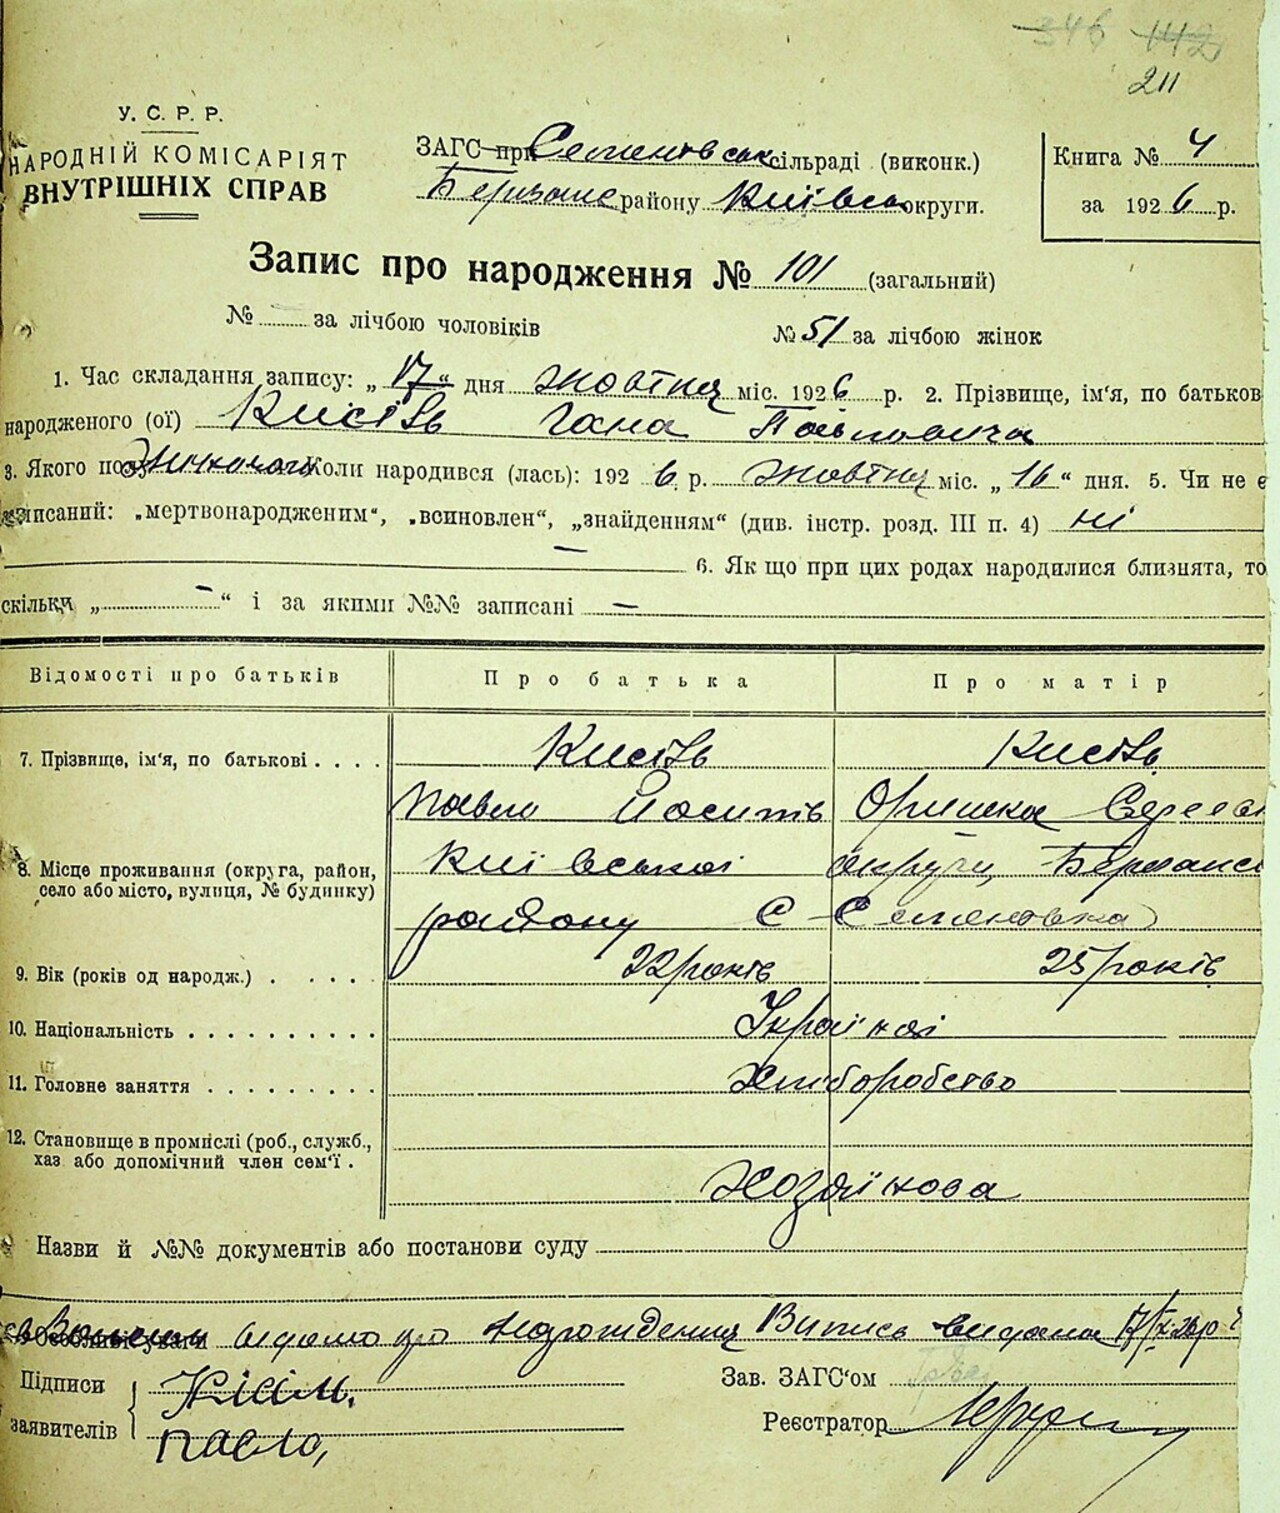 346 142
211
У. С. Р. Р.
НАРОДНІЙ КОМІСАРІЯТ
ВНУТРІШНІХ СПРАВ
ЗАГС при Семенівськ сільраді (виконк.)
району Київськ округи.
Книга № 4
за 1926 р.
Запис про народження № 101 (загальний)
№ за лічбою чоловіків
№ 51 за лічбою жінок
1. Час складання запису: „17“ дня жовтня міс. 1926 р. 2. Прізвище, ім'я, по батьков
народженого (ої) Кисіль Гана Павловича
3. Якого по Жіночого Коли народився (лась): 1926 р. жовтня міс. „16“ дня. 5. Чи не є
записаний: „мертвонародженим“, „всиновлен“, „знайденням“ (див. інстр. розд. III п. 4) ні
— 6. Як що при цих родах народилися близнята, то
скільки „ — “ і за якими №№ записані —
Відомості про батьків
Про батька
Про матір
7. Прізвище, ім'я, по батькові . . . .
Кисіль
Кисіль
Павло Йосипів
Оришка
8. Місце проживання (округа, район,
село або місто, вулиця, № будинку)
Київської округи, Березансь
району С Семеновка
9. Вік (років од народж.) . . . . .
22 років
25 років
10. Національність . . . . . . . . . .
Україної
11. Головне заняття . . . . . . . .
Хліборобство
12. Становище в промислі (роб., служб.,
хаз або допомічний член сем'ї .
Хозяїнова
Назви й №№ документів або постанови суду
Особливі уваги відомо про народження Випись видана 17/X-26р
Підписи
заявителів
Кісіль
Павло,
Зав. ЗАГС'ом
Реєстратор